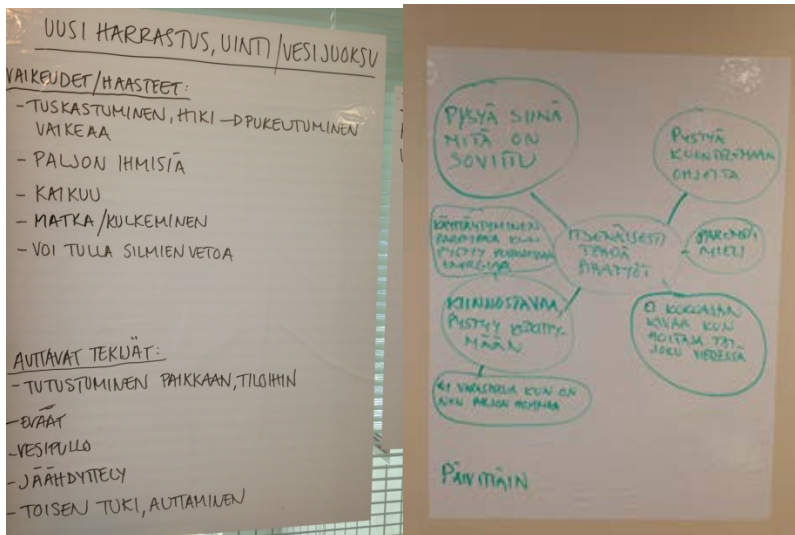 UUSI HARRASTUS, UINTI/VESIJUOKSU
VAIKEUDET/HAASTEET:
- TUSKASTUMINEN, HIKI → PUKEUTUMINEN
VAIKEAA
- PALJON IHMISIÄ
- KAIKUU
- MATKA/KULKEMINEN
- VOI TULLA SILMIEN VETOA
AUTTAVAT TEKIJÄT:
- TUTUSTUMINEN PAIKKAAN, TILOIHIN
- EVÄÄT
- VESIPULLO
- JÄÄHDYTTELY
- TOISEN TUKI, AUTTAMINEN
PYSYÄ SIINÄ
MITÄ ON
SOVITTU
PYSTYÄ
KUUNTELEMAAN
OHJEITA
KÄYTTÄYTYMINEN
PAREMPAA KUN
PYSTYY
ENERGIAA
ITSENÄISESTI
TEHDÄ
PAREMPI
MIELI
KIINNOSTAVAA,
PYSTYY KESKITTY-
MÄÄN
EI
KIVAA KUN
JOKU VIERESSÄ
EI KUN ON
NIIN PALJON
PÄIVITTÄIN